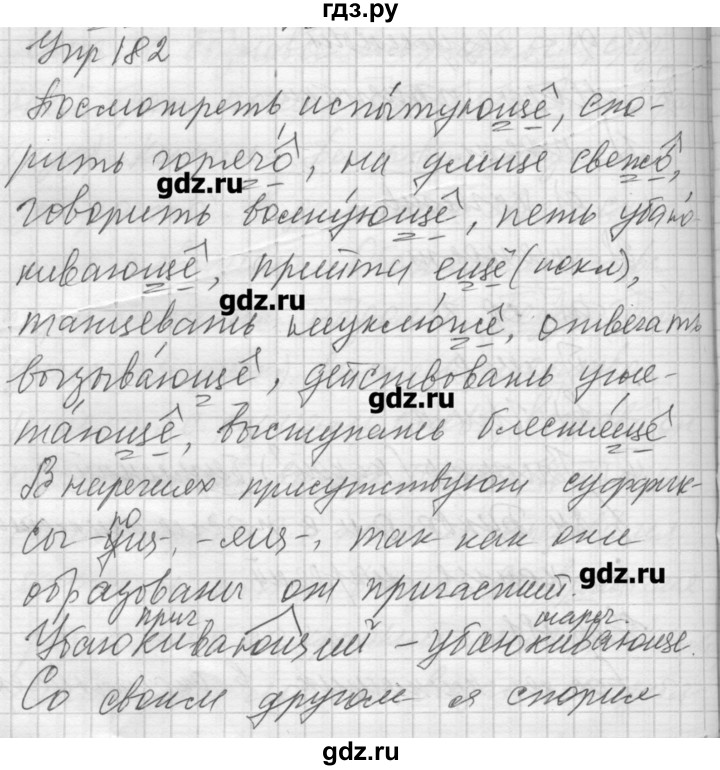 гдз.ру
Упр 182
Посмотреть испытующе, спо-
рить горячо, на улице свежо,
gdz.ru
говорить волнующе, петь убаю-
кивающе, прийти ещё (искл),
gdz.ru
танцевать неуклюже, отвечать
вызывающе, действовать угне-
gdz.ru
тающе, выступать блестяще
В наречиях присутствуют суффик-
сы -ущ-, -ющ-, -ящ-, так как они
образованы от причастий.
gdz.ru
прич нареч.
Убаюкивающий - убаюкивающе.
Со своим другом я спорил
gdz.ru